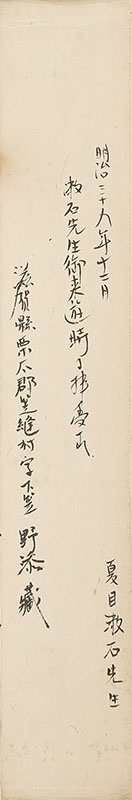 明治三十八年十二月
漱石先生御来遊時ニ拝受ス
滋賀縣栗太郡笠縫村字下笠 野添藏
夏目漱石先生